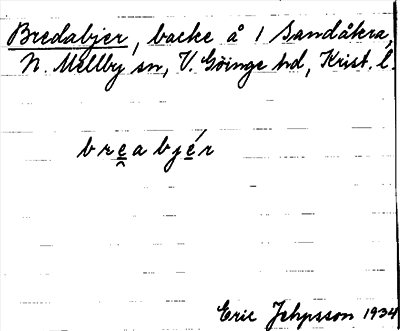 Bredabjer, backe å 1 Sandåkra,
N. Mellby sn, V. Göinge hd, Krist. l.
breabjér
Eric Jehpsson 1934